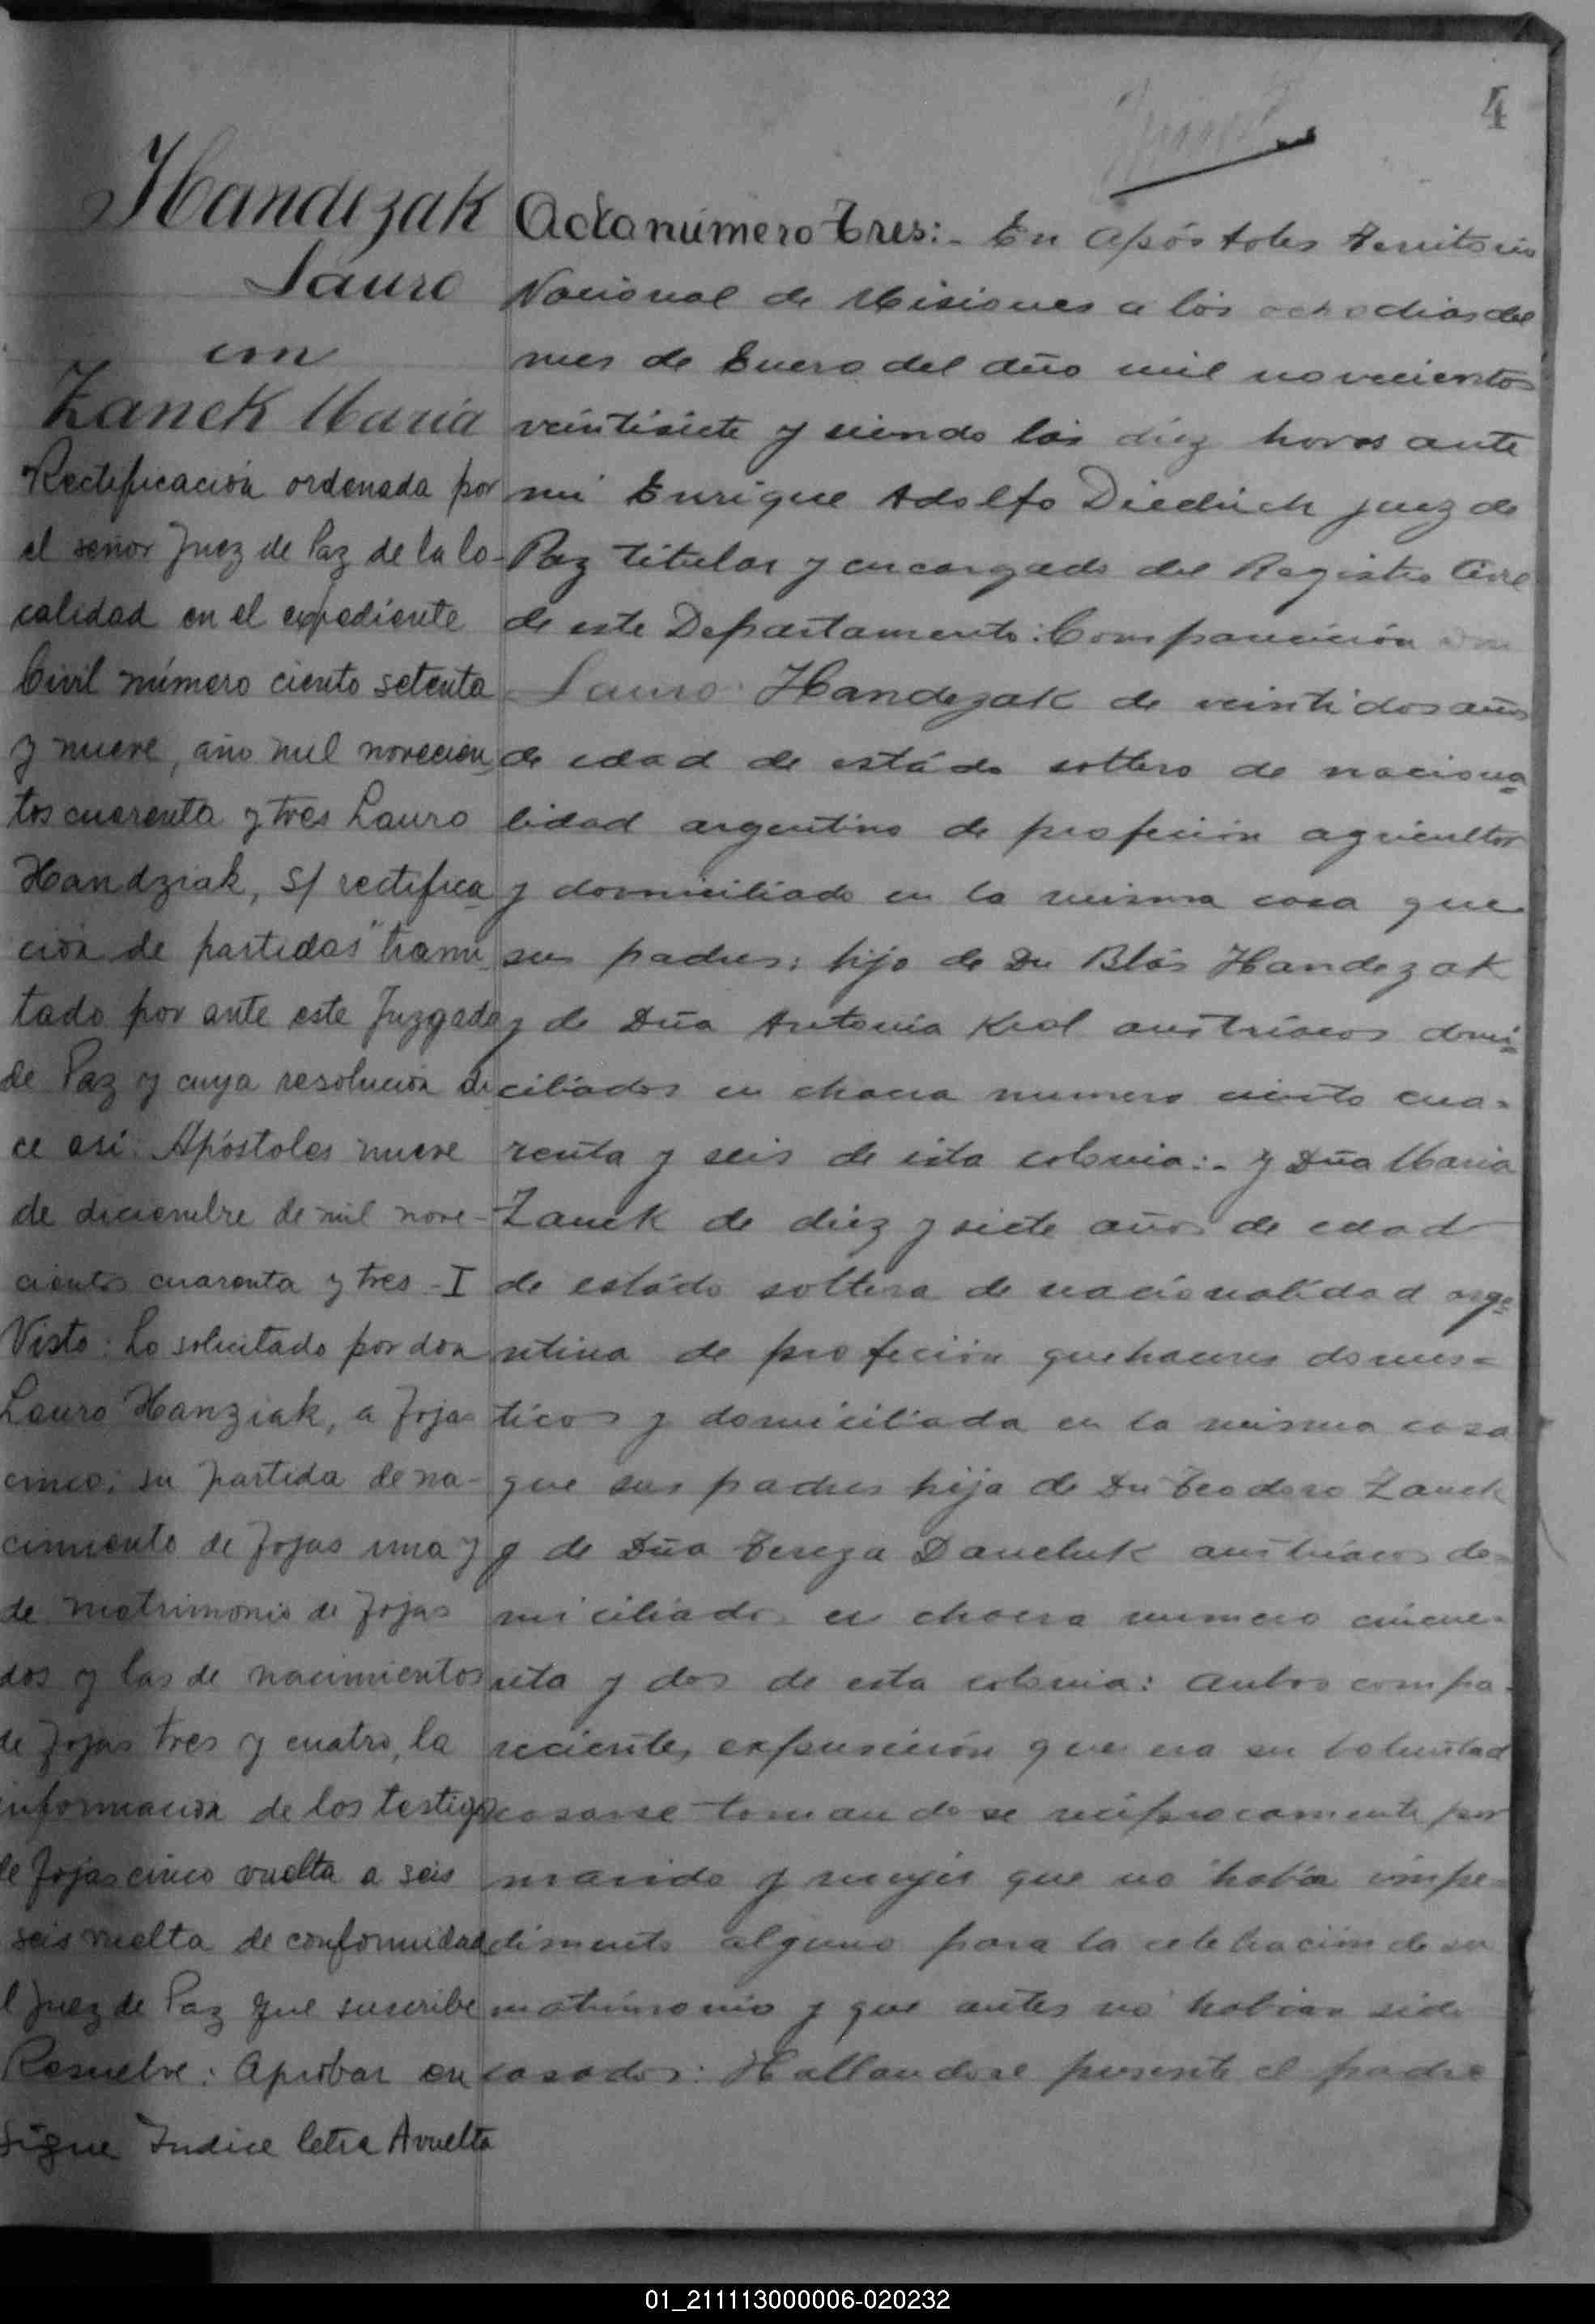 4
Handezak
Lauro
con
Zanek Maria
Rectificación ordenada por
el señor Juez de Paz de la lo-
calidad en el expediente
Civil número ciento setenta
y nueve, año mil novecien
tos cuarenta y tres Lauro
Handziak, S/ rectifica
ción de partidas" trami
tado por ante este Juzgado
de Paz y cuya resolución di
ce asi: Apóstoles nueve
de diciembre de mil nove-
cientos cuarenta y tres - I
Visto: Lo solicitado por don
Lauro Hanziak, a fojas
cinco; su partida de na-
cimiento de fojas una y
de matrimonio de fojas
dos y las de nacimientos
de fojas tres y cuatro, la
información de los testigos
de fojas cinco vuelta a seis
seis vuelta de conformidad
l Juez de Paz que suscribe
Resuelve: Aprobar en
Sigue Indice letra A vuelta
Acta número tres:- En Apóstoles Territorio
Nacional de Misiones a los ocho dias del
mes de Enero del año mil novecientos
veintisiete y siendo las diez horas ante
mi Enrique Adolfo Diedrich juez de
Paz titular y encargado del Registro Civil
de este Departamento: Comparición don
Lauro Handezak de veintidos años
de edad de estádo soltero de naciona
lidad argentino de profeción agricultor
y domiciliado en la misma casa que
sus padres: hijo de Dn Blás Handezak
y de Dña Antonia Krol austríacos domi
ciliados en chacra numero ciento cua-
renta y seis de esta colonia:- y Dña Maria
Zanek de diez y siete años de edad
de estádo soltera de nacionalidad arge
ntina de profeción quehaceres domes-
ticos y domiciliada en la misma casa
que sus padres hija de Dn Teodoro Zanek
y de Dña Tereza Daneluk austriacos do-
miciliados en chacra numero cincue-
nta y dos de esta colonia: Ambos compa-
recientes expusición que era su voluntad
casarse tomandose reciprocamente por
marido y mujer que no había impe-
dimento alguno para la celebración de su
matrimonio y que antes no habian sido
casados: Hallandose presente el padre
01_211113000006-020232